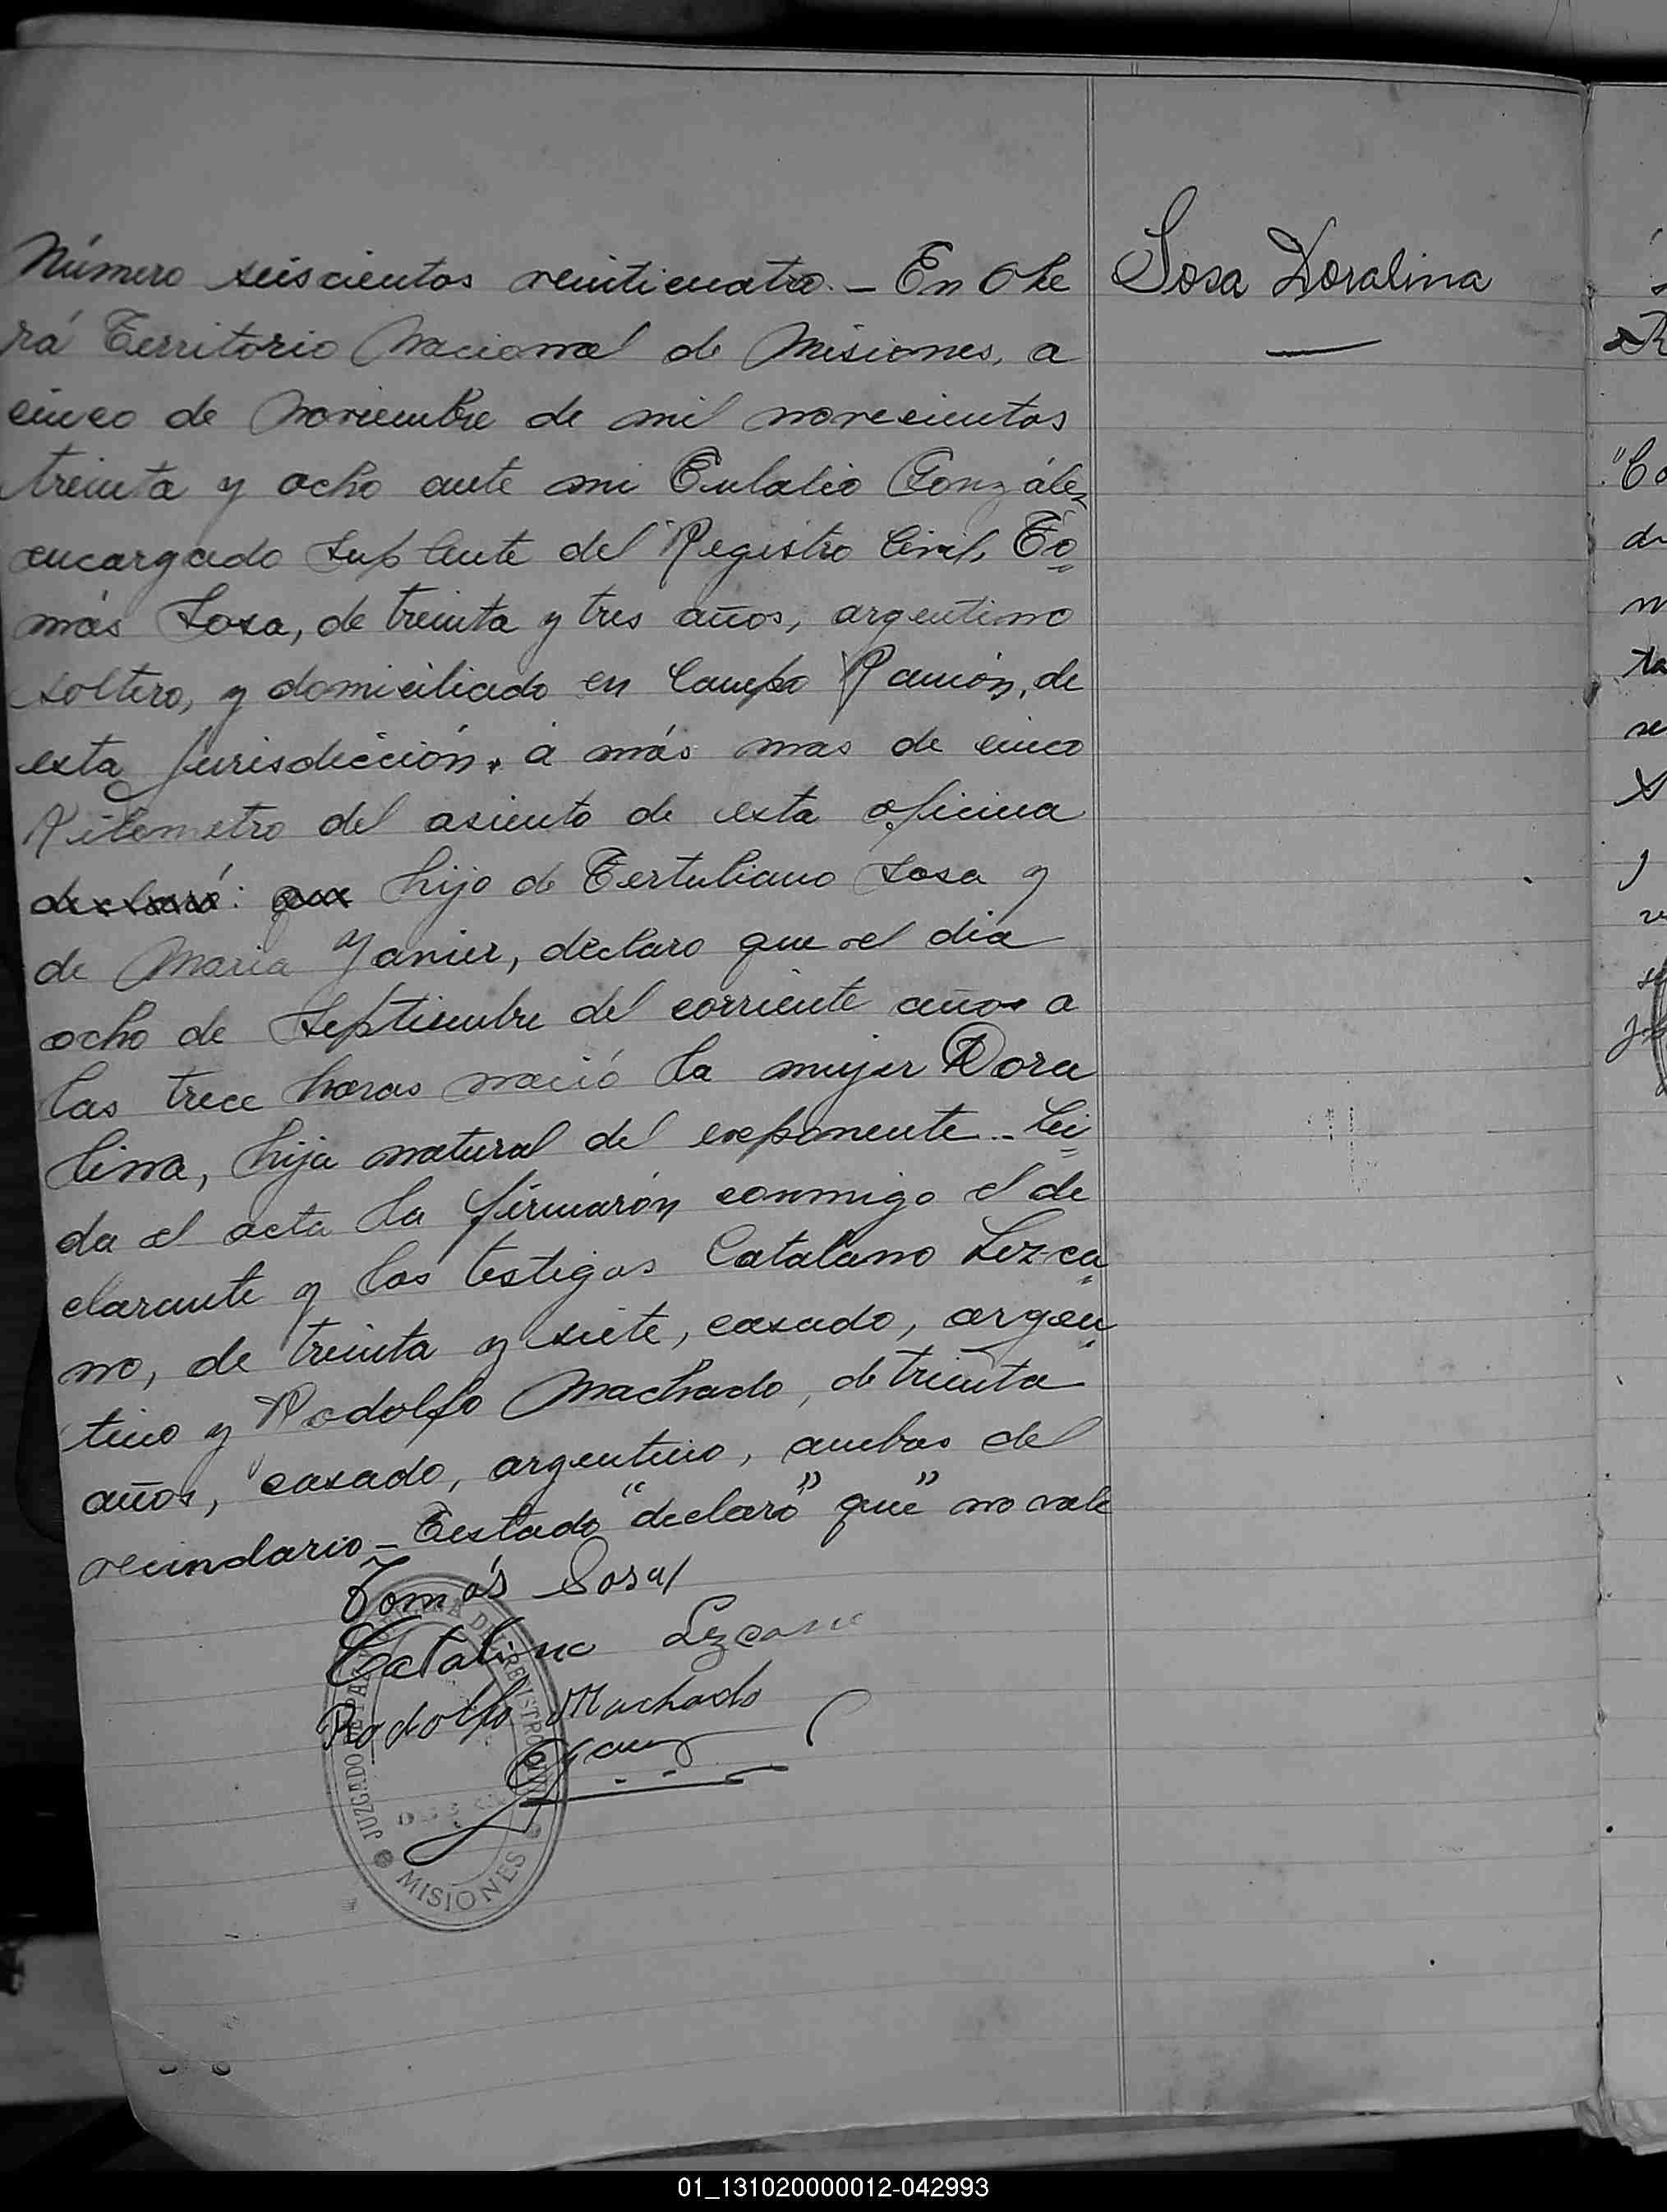 Número seiscientos veinticuatro. - En Obe
Sosa Doralina
rá Territorio Nacional de Misiones, a
cinco de Noviembre de mil novecientos
treinta y ocho ante mi Eulalio González
encargado Suplente del Registro Civil, To=
más Sosa, de treinta y tres años, argentino
soltero, y domiciliado en Campo Ramón, de
esta jurisdicción, a más mas de cinco
Kilometro del asiento de esta oficina
declaró: que hijo de Tertuliano Sosa y
de Maria Yanier, declaro que el día
ocho de Septiembre del corriente años a
las trece horas nació la mujer Dora
lina, hija natural del exponente - Leí=
da el acta la firmarón conmigo el de
clarante y los testigos Catalano Lezca=
no, de treinta y siete, casado, argen=
tino y Rodolfo Machado, de treinta
años, casado, argentino, ambos del
vecindario - Testado "declaró" que" no vale
Tomás Sosa
Catalino Lezcano
Rodolfo Machado
JUZGADO DE PAZ DEL REGISTRO CIVIL
MISIONES
01_131020000012-042993